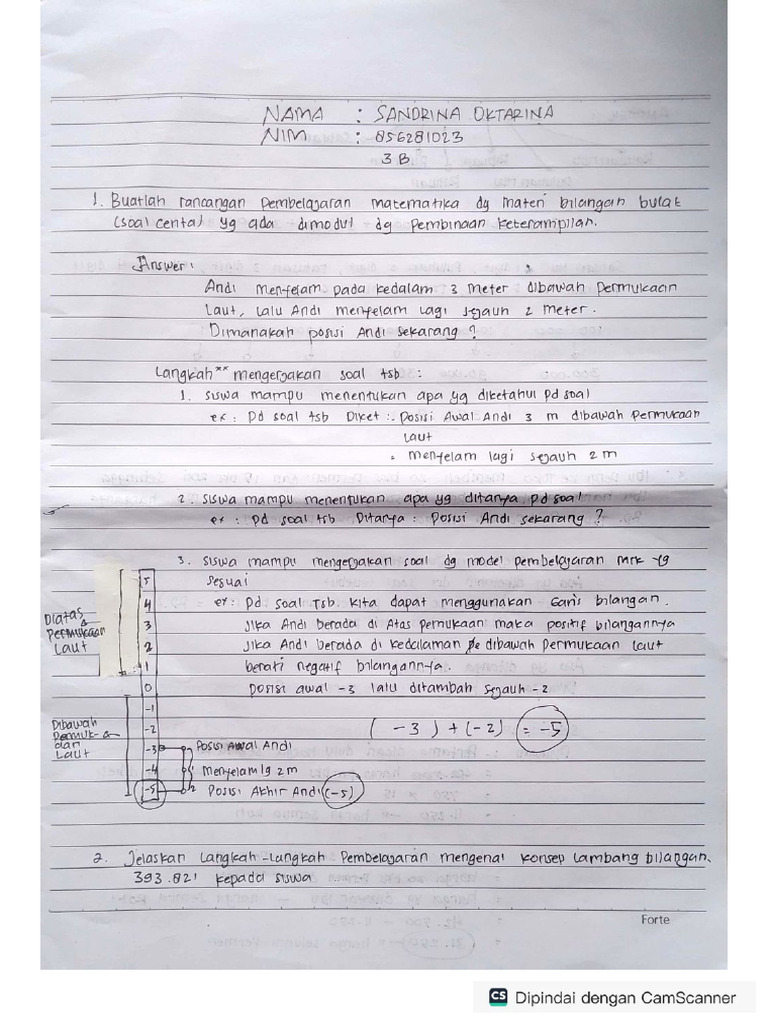 NAMA : SANDRINA OKTARINA
NIM : 856281023
3 B
1. Buatlah rancangan Pembelajaran matematika dg materi bilangan bulat
(soal cerita) yg ada dimodul dg pembinaan keterampilan.
Answer :
Andi menyelam pada kedalam 3 meter dibawah permukaan
laut, lalu Andi menyelam lagi sejauh 2 meter.
Dimanakah posisi Andi sekarang ?
Langkah** mengerjakan soal tsb :
1. siswa mampu menentukan apa yg diketahui pd soal
ex : Pd soal tsb Diket : Posisi Awal Andi 3 m dibawah Permukaan
laut
= menyelam lagi sejauh 2 m
2. siswa mampu menentukan apa yg ditanya pd soal
ex : pd soal tsb Ditanya : Posisi Andi sekarang ?
3. siswa mampu mengerjakan soal dg model pembelajaran mtk yg
sesuai
ex : Pd soal Tsb. kita dapat menggunakan Garis bilangan.
Jika Andi berada di Atas permukaan maka positif bilangannya
Jika Andi berada di kedalaman dibawah Permukaan laut
berati negatif bilangannya.
posisi awal -3 lalu ditambah sejauh -2
( -3 ) + (-2) = -5
Diatas
Permukaan
Laut
5
4
3
2
1
0
-1
-2
-3
-4
-5
Dibawah
Permuk-
aan
Laut
Posisi Awal Andi
1 Menyelam lg 2m
2 Posisi Akhir Andi (-5)
2. Jelaskan Langkah-Langkah Pembelajaran mengenai konsep lambang bilangan.
393.821 kepada siswa
Forte
CS Dipindai dengan CamScanner